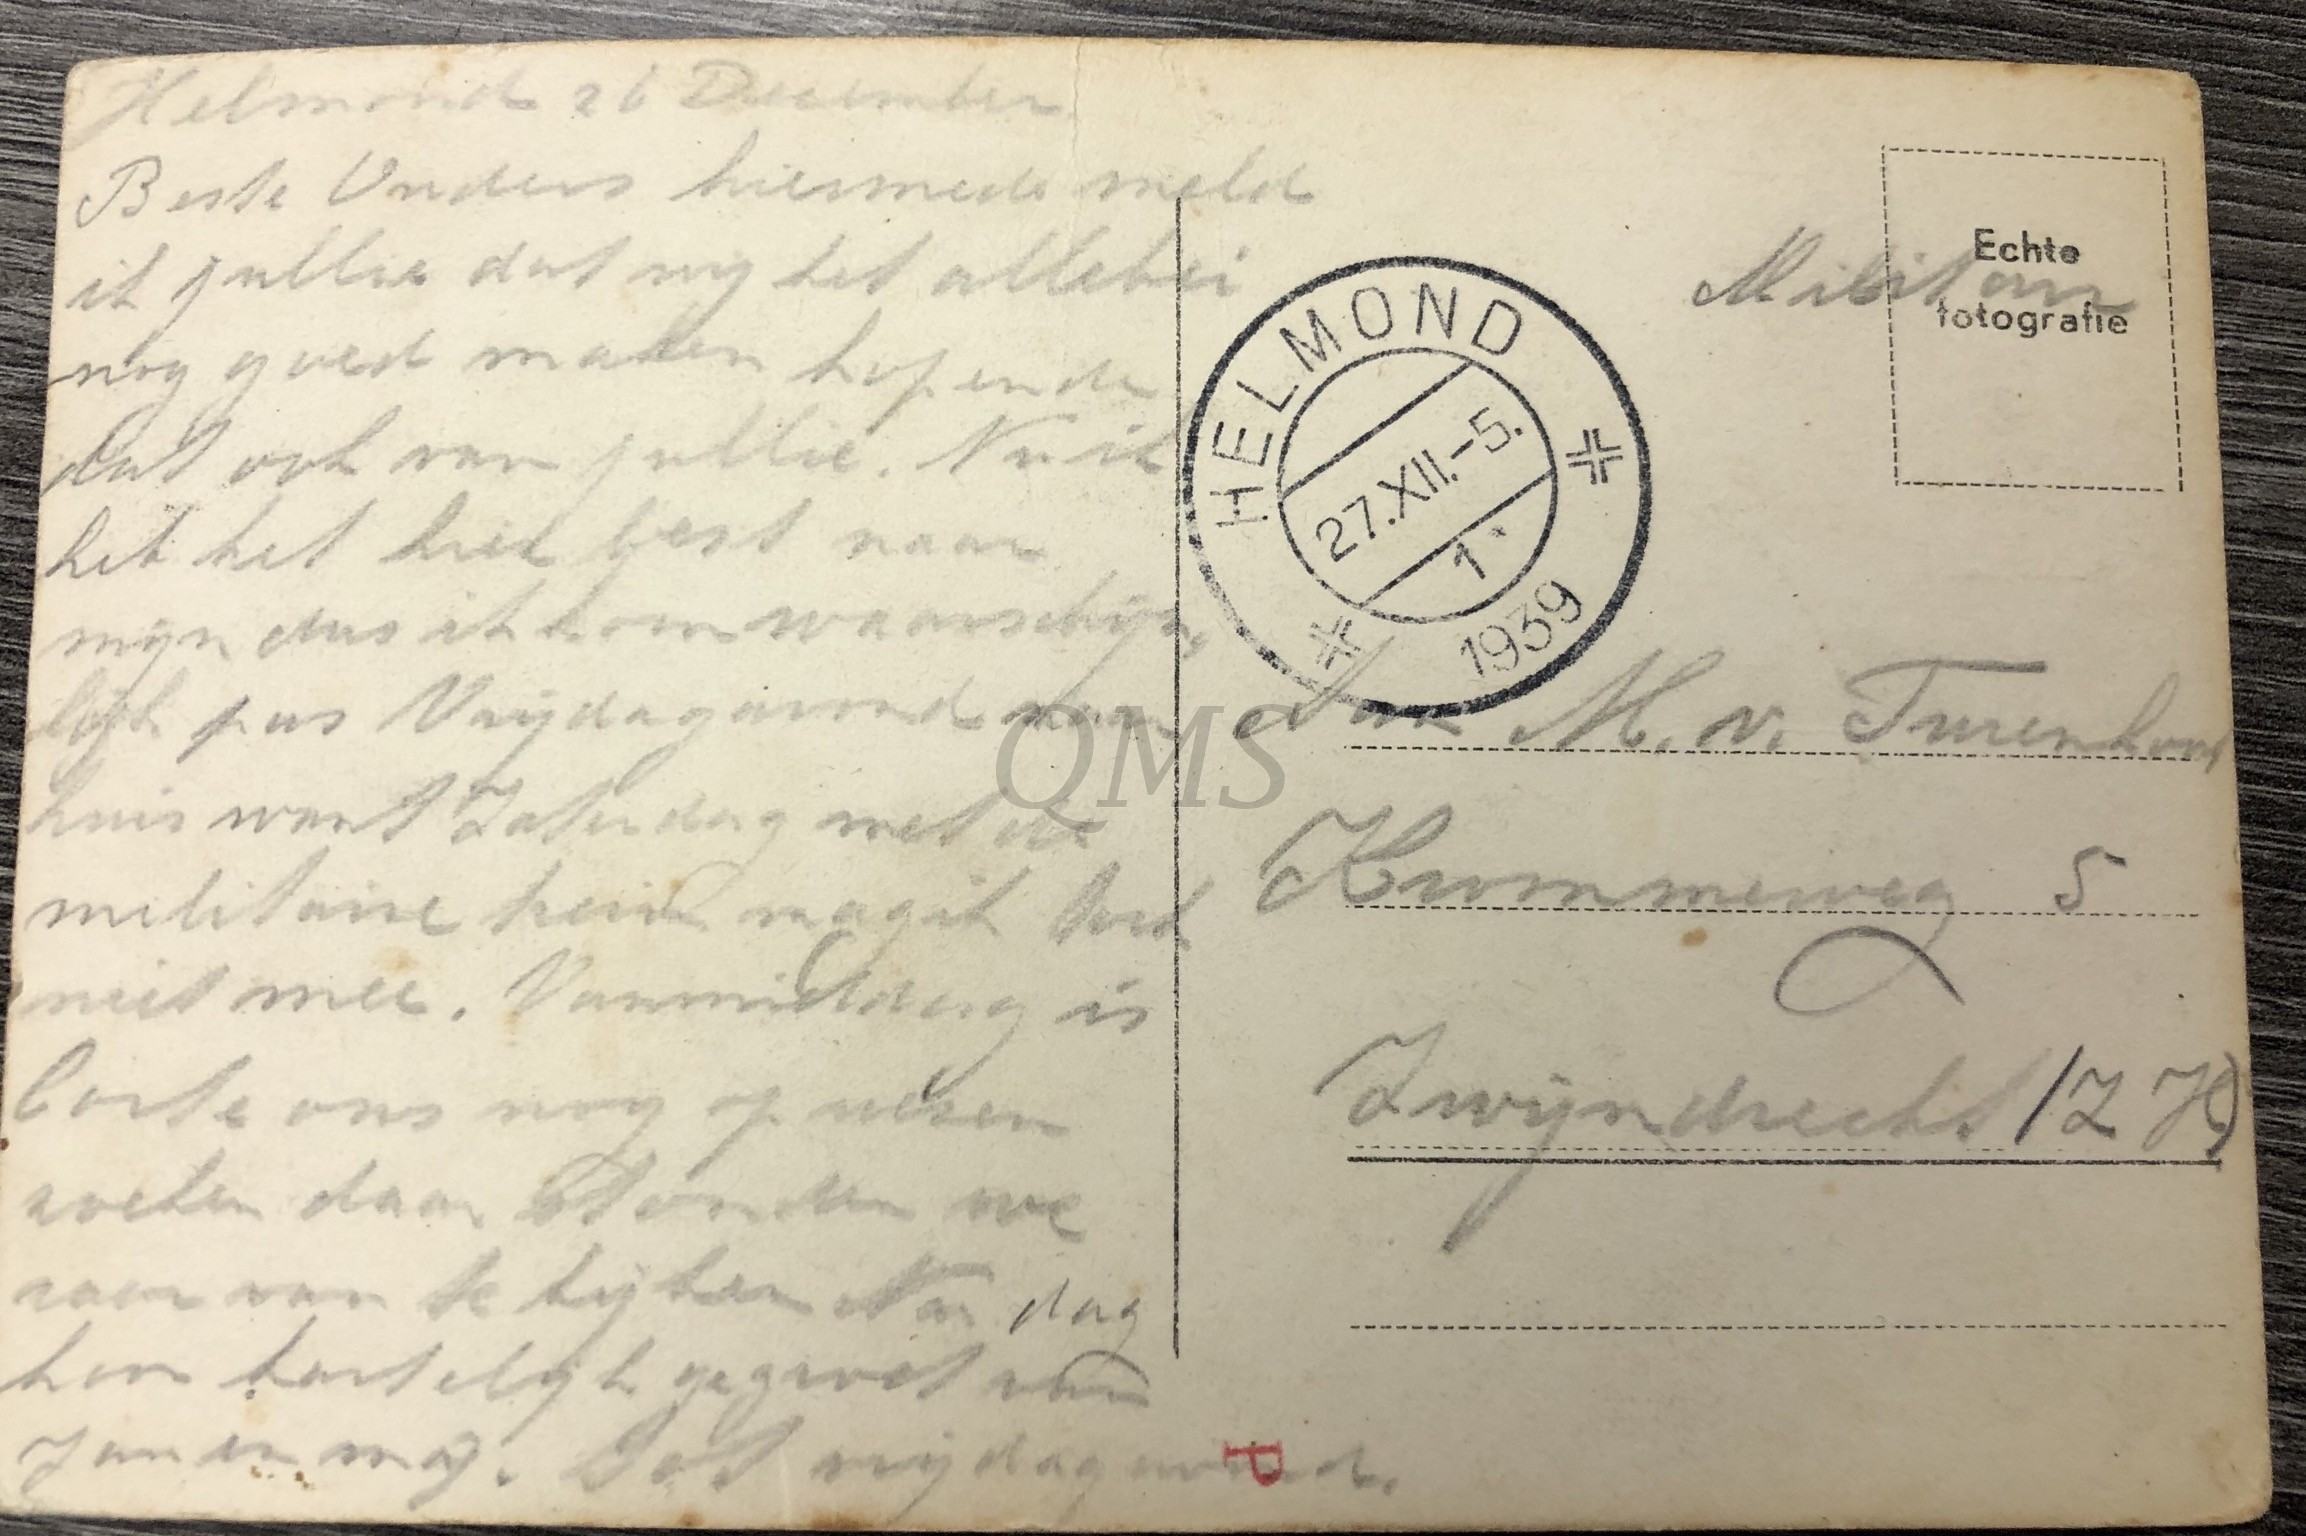 Helmond 26 December
Beste Ouders hiermede meld
ik jullie dat wij het allebei
nog goed maken hopende
dat ook van jullie. Nu ik
heb het hier best naar
mijn dus ik kom waarschijn
lijk pas Vrijdagavond naar
huis want Zaterdag met de
militaire trein mag ik toch
niet mee. Vanmiddag is
ons nog op
weten daar stonden we
raar van te kijken Nu dag
hoor hartelijk gegroet van
Jan en mij. Tot vrijdagavond.
Militair
Echte
fotografie
HELMOND
27.XII.-5.
1
1939
Aan M. v. Turenhout
Krommeweg 5
Zwijndrecht (Z H)
QMS
P